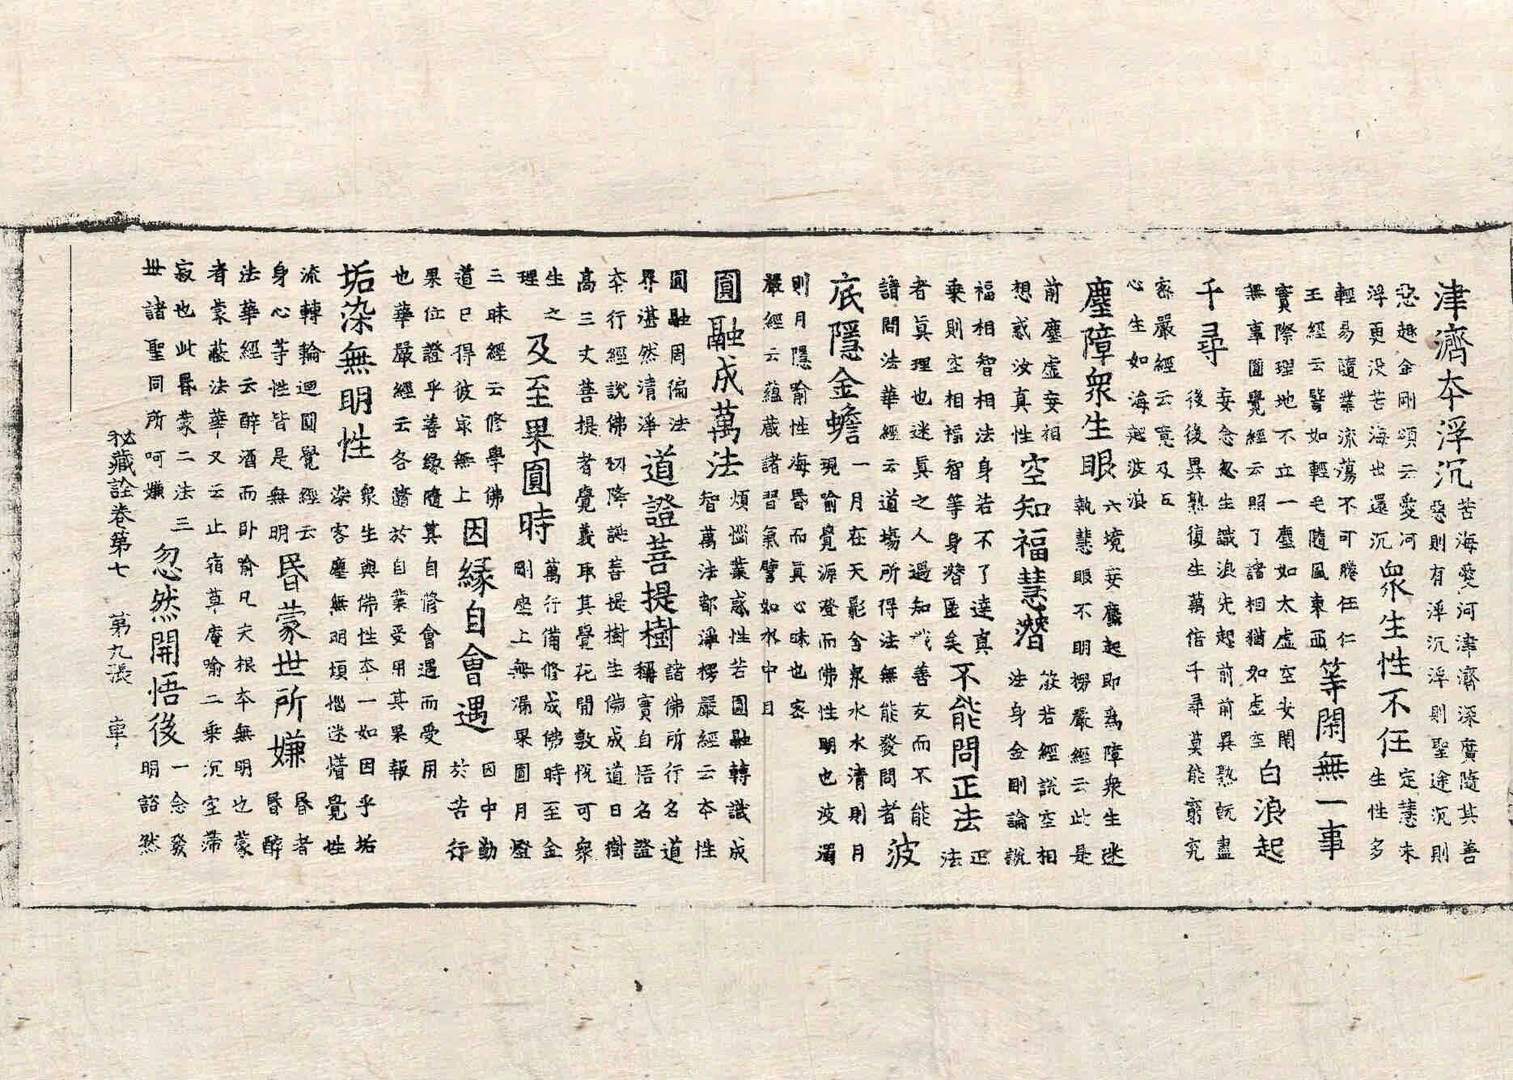 津濟夲浮沉 苦海愛河津濟深廣隨其善 惡則有浮沉浮則聖途沉則
惡趣金剛頌云愛河 浮更没苦海出還沉 衆生性不任 定慧未 生性多
輕易隨業流蕩不可勝任仁 王經云譬如輕毛隨風東西 等閑無一事
實際理地不立一塵如太虛空安閑 無事圓覺經云照了諸相猶如虛空 白浪起
千尋 妄念忽生識浪先起前前異熟既盡 後後異熟復生萬倍千尋莫能窮究
密嚴經云意及五 心生如海起波浪
塵障衆生眼 六境妄塵起即爲障衆生迷 執慧眼不明楞嚴經云此是
前塵虛妄相 想惑汝真性 空知福慧潛 般若經説空相 法身金剛論說
福相智相法身若不了達真 乗則空相福智等身潛匿矣 不能問正法 正 法
者眞理也迷眞之人遇知識善友而不能 請問法華經云道場所得法無能發問者 波
底隱金蟾 一月在天影含衆水水清則月 現喻覺源澄而佛性明也波濁
則月隱喻性海昬而眞心昧也密 嚴經云蘊藏諸習氣譬如水中月
圓融成萬法 煩惱業惑性若圓融轉識成 智萬法都淨楞嚴經云夲性
圓融周徧法 界湛然清淨 道證菩提樹 諸佛所行名道 稱實自悟名證
夲行經說佛初降誕菩提樹生佛成道日樹 高三丈菩提者覺義取其覺花開敷悅可衆
生之 理 及至果圓時 萬行備修成佛時至金 剛座上無漏果圓月燈
三昧經云修學佛 道已得彼牢無上 因緣自會遇 因中勤 於苦行
果位證乎善緣隨其自修會遇而受用 也華嚴經云各隨於自業受用其果報
垢染無明性 衆生與佛性夲一如因乎垢 染客塵無明煩惱迷懵覺性
流轉輪迴圓覺經云 身心等性皆是無明 昬蒙世所嫌 昬者 昬醉
法華經云醉酒而卧喻凡夫根夲無明也蒙 者蒙蔽法華又云止宿草庵喻二乗沉空滯
寂也此昬蒙二法三 世諸聖同所呵嫌 忽然開悟後 一念發 明豁然
秘藏詮卷第七 第九張 車